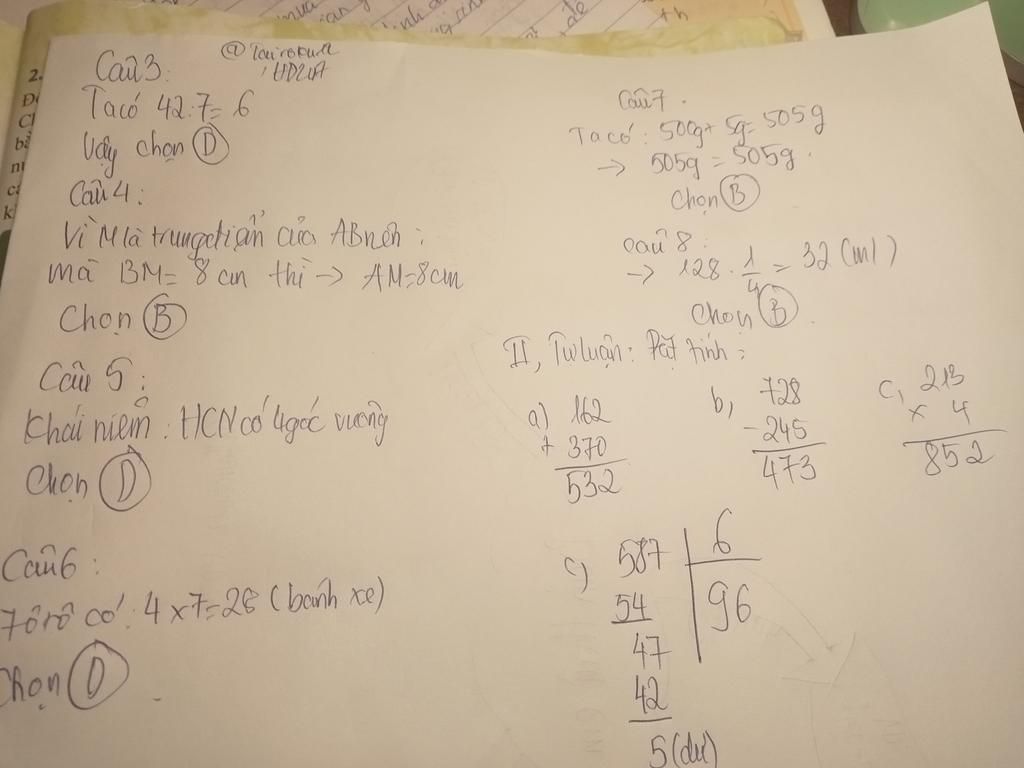 Câu 3:
Ta có 42:7= 6
Vậy chọn D
Câu 4:
Vì M là trung điểm của AB nên:
mà BM= 8 cm thì → AM=8cm
Chọn B
Câu 5:
Khái niệm: HCN có 4 góc vuông
Chọn D
Câu 6:
7 ô tô có: 4 x 7=28 (bánh xe)
Chọn D
Câu 7.
Ta có: 500g+ 5g= 505g
→ 505g = 505g.
Chọn B
Câu 8:
→ 128 . 1/4 = 32 (ml)
Chọn B.
II, Tự luận: Đặt tính:
a) 162
+ 370
532
b, 728
- 245
473
c, 213
x 4
852
c) 587 6
54 96
47
42
5 (dư)